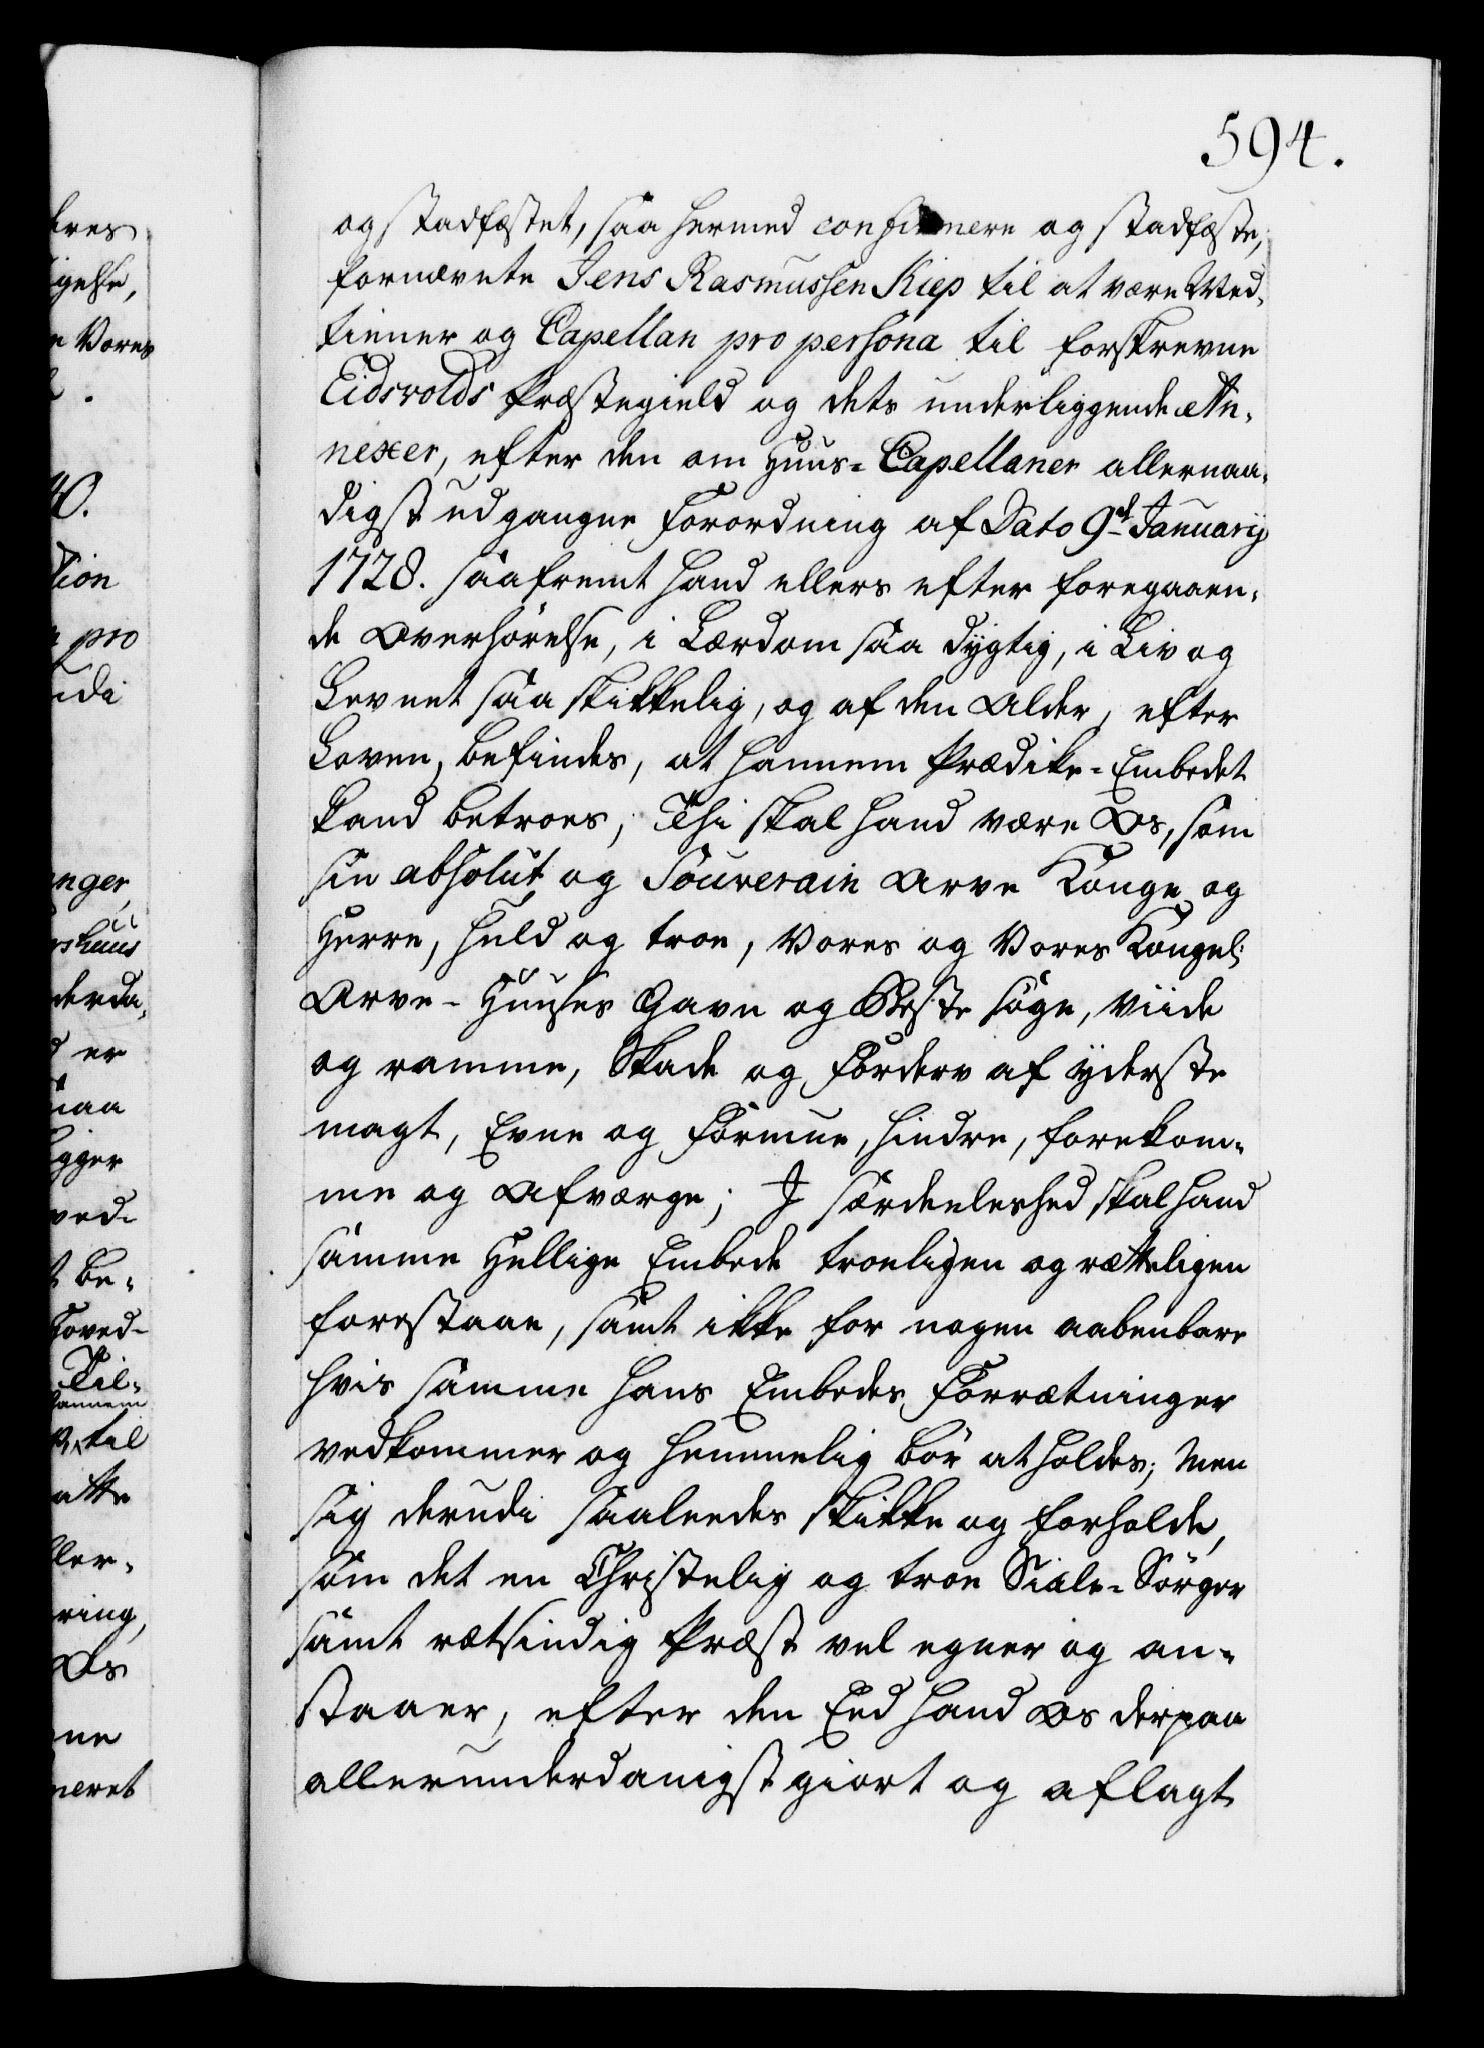 594.
og stadfæstet, saa hermed confirmere og stadfæste,
fornævnte Jens Rasmussen Kiep til at være Med-
tiener og Capellan pro persona til forskrevne
Eidsvolds Præstegield og dets underliggende An-
nexer, efter den om Huus-Capellaner allernaa-
digst udgangne Forordning af Dato 9d January
1728. saafremt hand ellers efter foregaaen-
de Overhörelse, i Lærdom saa dygtig, i Liv og
Levnet saa skikkelig, og af den Alder, efter
Loven, befindes, at hannem Prædike-Embedet
kand betroes; Thi skal hand være Os, som
sin absolut og Souverain Arve Konge og
Herre, huld og troe, Vores og Vores Kongel:
Arve-Huuses Gavn og Beste söge, viide
og ramme, Skade og Forderv af yderste
magt, Evne og Formue, hindre, forekom-
me og Afværge; J særdeeleshed skal hand
samme Hellige Embede troeligen og rætteligen
forestaae, samt ikke for nogen aabenbare
hvis samme hans Embedes Forrætninger
vedkommer og hemmelig bör at holdes; Men
sig derudi saaleedes skikke og forholde,
som det en Christelig og troe Siæle-Sörger
samt rætsindig Præst vel egner og an-
staaer, efter den Eed hand Os derpaa
allerunderdanigst giort og aflagt